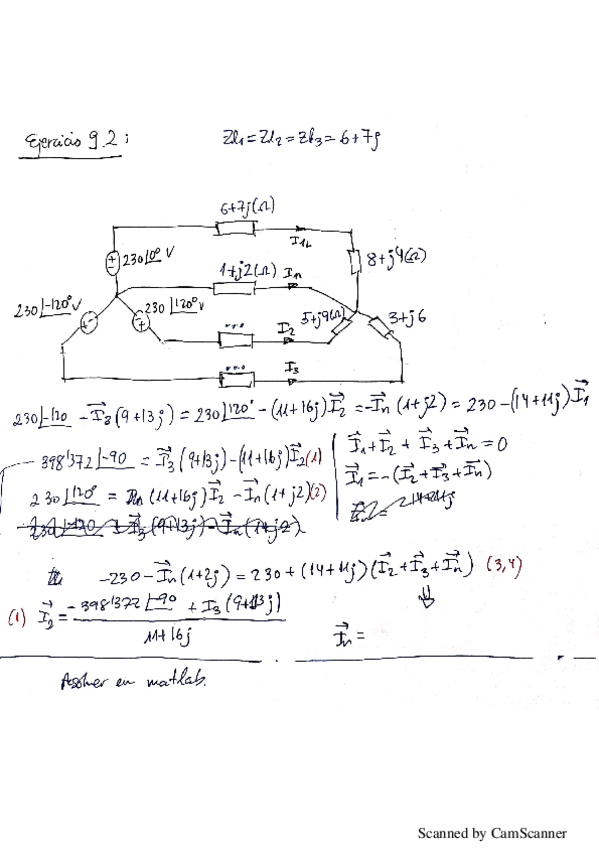 Ejercicio 9.2: Zl₁=Zl₂=Zl₃=6+7j
6+7j(Ω)
I1
230∠0° V
8+j4(Ω)
1+j2(Ω) In
230∠-120° V
230∠120° V
5+j9(Ω)
3+j6
... I2
... I3
230∠-120 - I⃗3(9+13j) = 230∠120° - (11+16j)I⃗2 = -I⃗n(1+j2) = 230-(14+11j)I⃗1
398'372∠-90 = I⃗3(9+13j)-(11+16j)I⃗2 (1)
I⃗1+I⃗2+I⃗3+I⃗n=0
I⃗1=-(I⃗2+I⃗3+I⃗n)
230∠120° = (11+16j)I⃗2-I⃗n(1+j2) (2)
-230-I⃗n(1+2j)=230+(14+11j)(I⃗2+I⃗3+I⃗n) (3,4)
⇓
(1) I⃗2= -398'372∠-90 + I3(9+13j)
11+16j
I⃗n=
en matlab.
Scanned by CamScanner